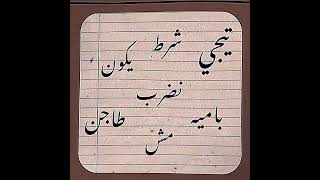 تيجي شرط يكون
نضرب
باميه مش طاجن